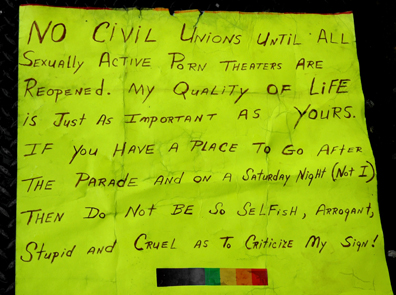 NO CIVIL UNIONS UNTIL ALL
SEXUALLY ACTIVE PORN THEATERS ARE
REOPENED. MY QUALITY OF LIFE
IS JUST AS IMPORTANT AS YOURS.
IF YOU HAVE A PLACE TO GO AFTER
THE PARADE AND ON A SATURDAY NIGHT (NOT I)
THEN DO NOT BE SO SELFISH, ARROGANT,
STUPID AND CRUEL AS TO CRITICIZE MY SIGN!